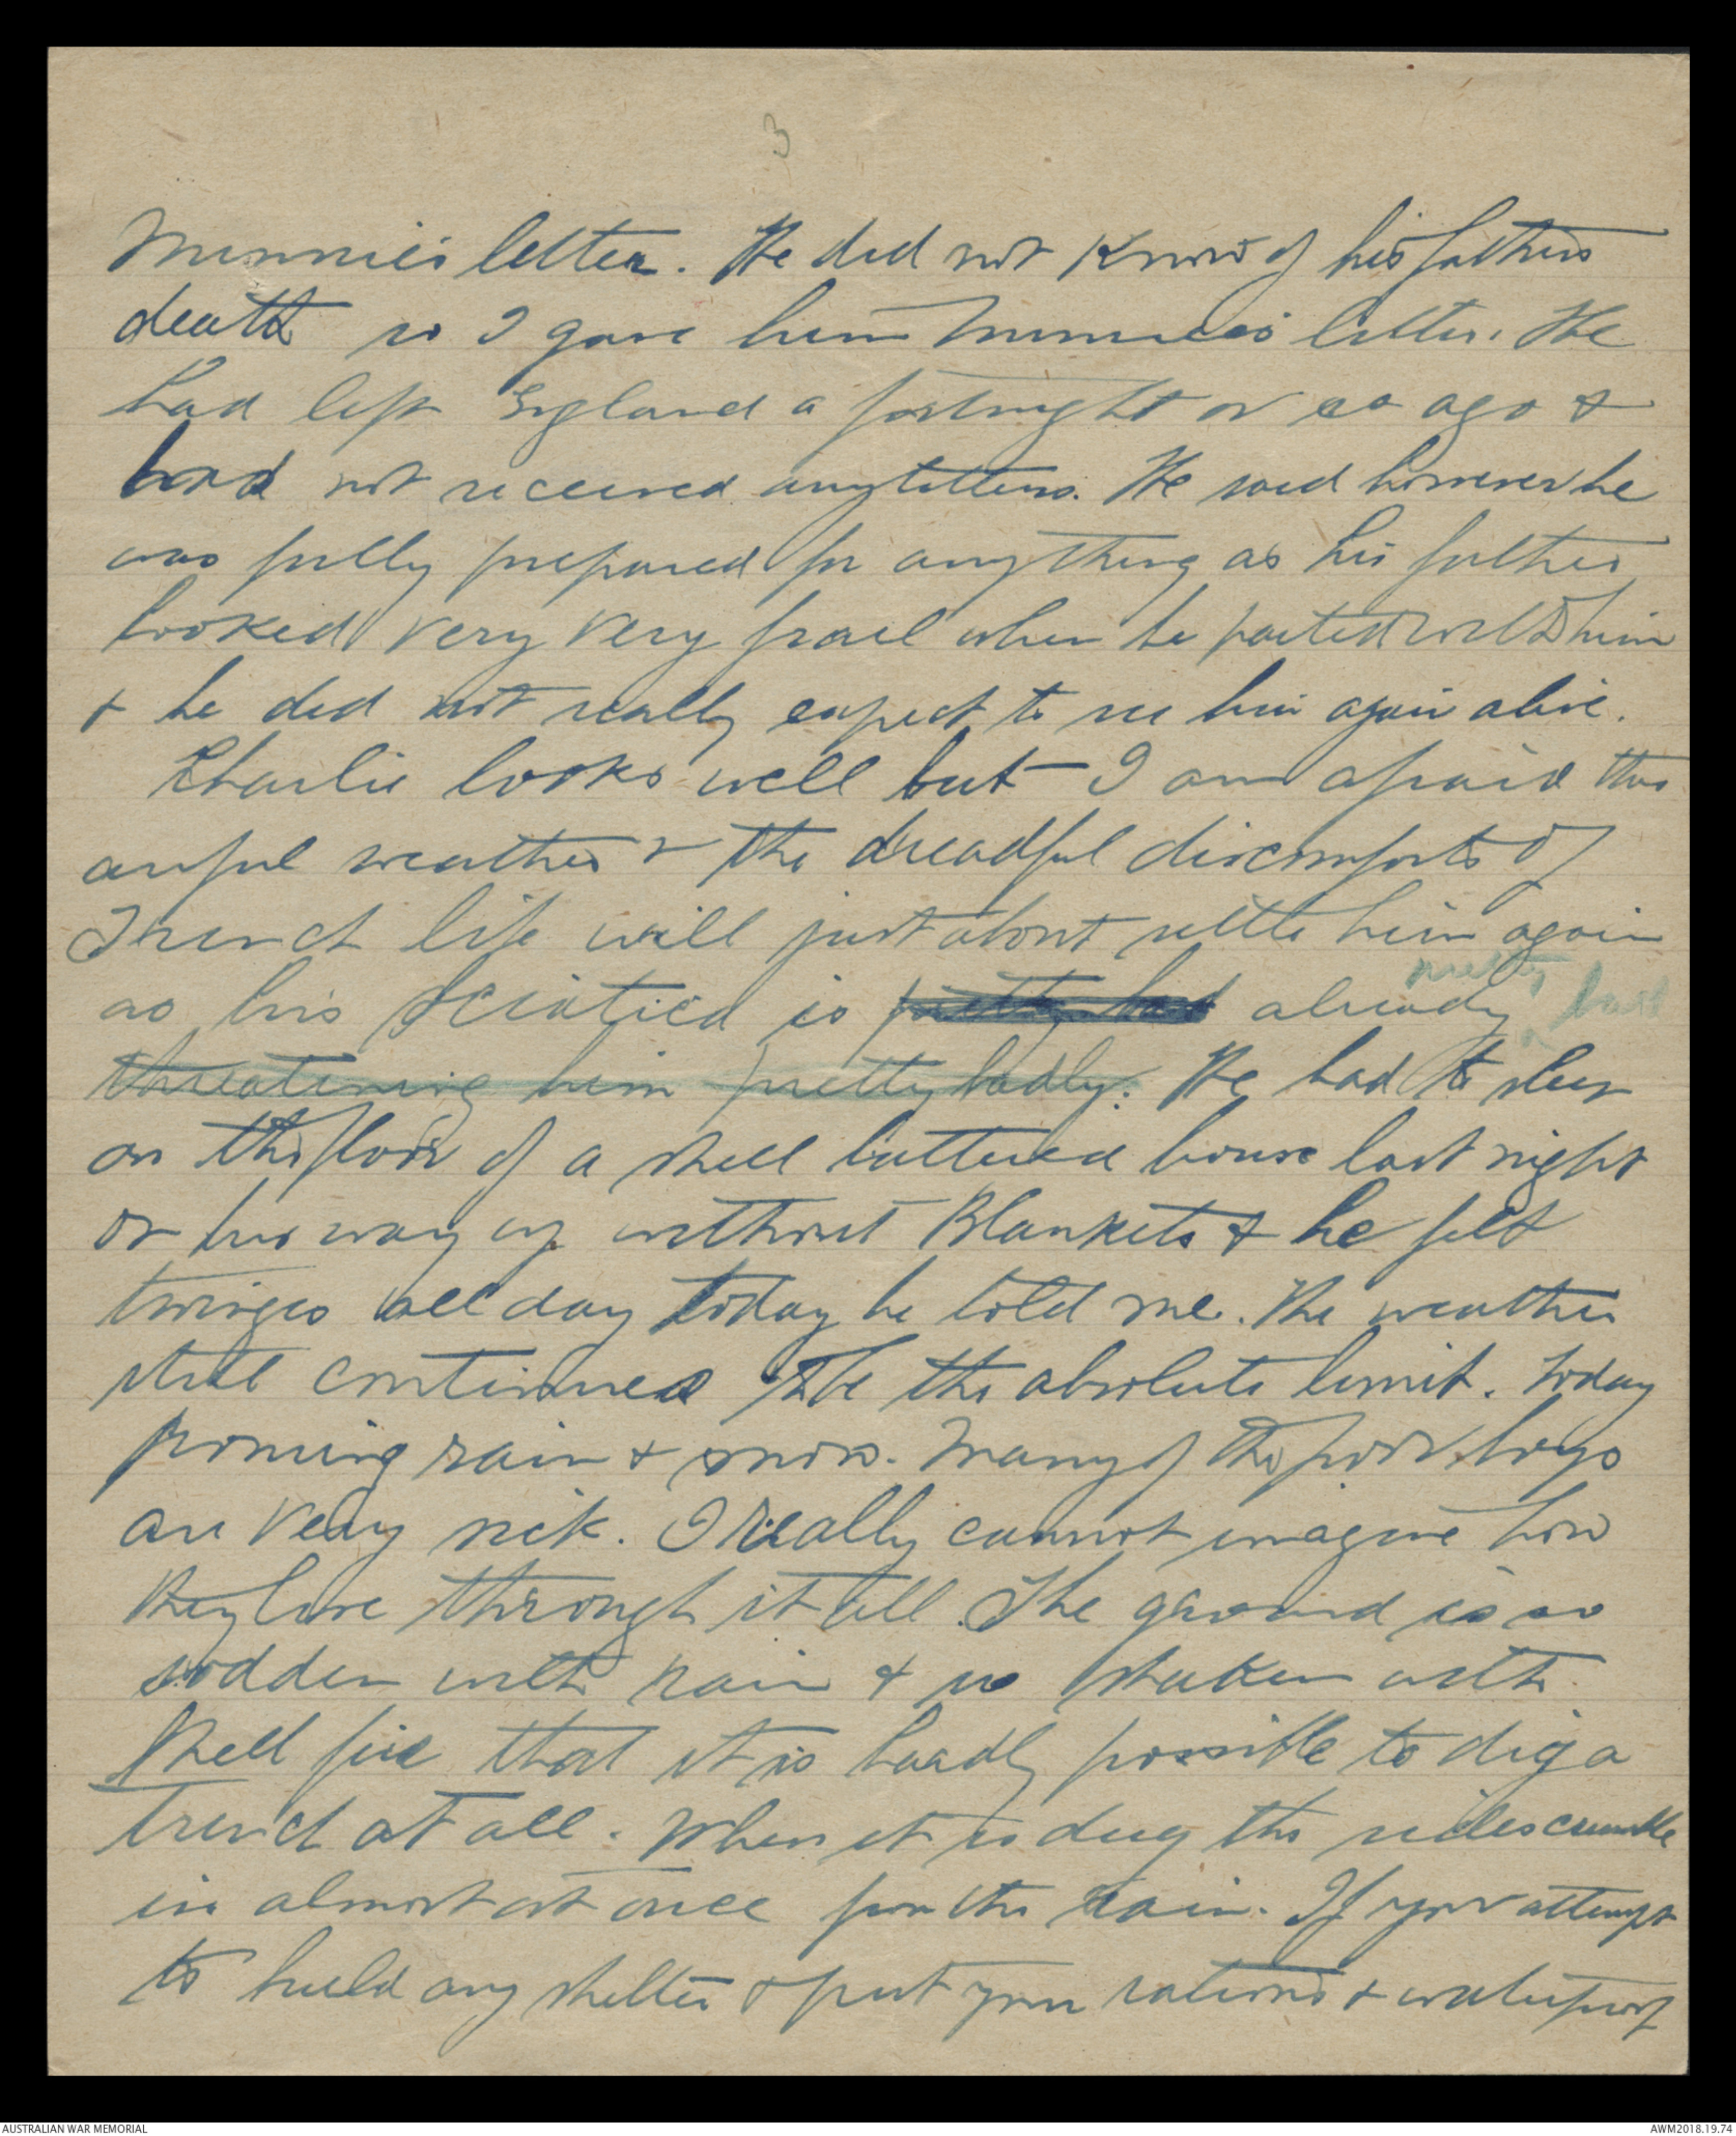 3
Minnie's letter. He did not know of his fathers
death so I gave him Minnie's letter. He
had left England a fortnight or so ago &
had not received any letters. He said however he
was fully prepared for anything as his father
looked very very frail when he parted with him
& he did not really expect to see him again alive.
Charlie looks well but I am afraid this
awful weather & the dreadful discomforts of
Trench life will just about settle him again
as his sciatica is pretty bad already pretty bad
threatening him pretty badly. He had to sleep
on the floor of a shell battered house last night
on his way up without Blankets & he felt
twinges all day today he told me. The weather
still continues to be the absolute limit. Today
pouring rain & snow. Many of the poor boys
are very sick. I really cannot imagine how
they live through it all. The ground is so
sodden with rain & so shaken with
shell fire that it is hardly possible to dig a
Trench at all. When it is dug the sides crumble
in almost at once from the rain. If you attempt
to build any shelter & put your rations & waterproof
AUSTRALIAN WAR MEMORIAL
AWM2018.19.74